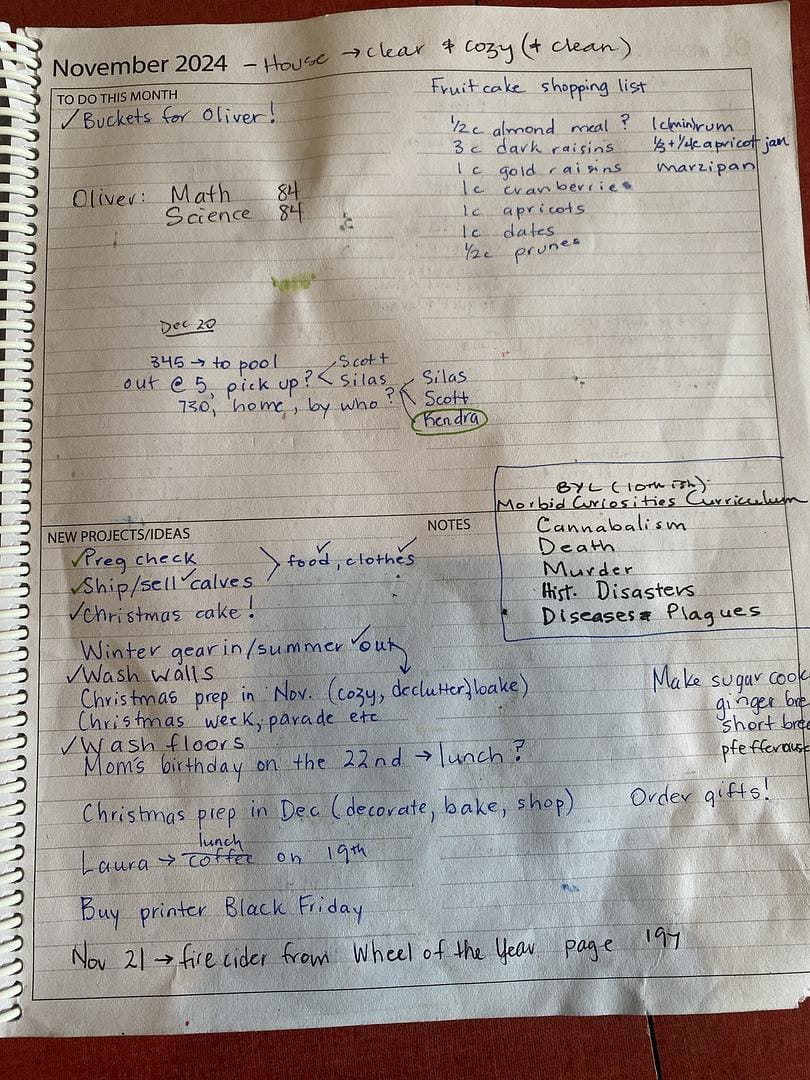 November 2024 - House → clear & cozy (+ clean)
TO DO THIS MONTH
✓ Buckets for Oliver!
Fruitcake shopping list
1/2 c almond meal ? 1c(min) rum
3 c dark raisins 1/3 + 1/4c apricot jam
1 c gold raisins marzipan
1c cranberries
1c apricots
1c dates
1/2c prunes
Oliver: Math 84
Science 84
Dec 20
345 → to pool
out @ 5, pick up? < Scott
Silas
730, home, by who? < Silas
Scott
Kendra
BYL (10th ish)
Morbid Curiosities Curriculum
Cannabalism
Death
Murder
Hist. Disasters
Diseases & Plagues
NEW PROJECTS/IDEAS
NOTES
✓ Preg check
✓ Ship/sell ✓ calves > food ✓, clothes ✓
✓ Christmas cake!
Winter gear in/summer ✓ out
✓ Wash walls
Christmas prep in Nov. (cozy, declutter, bake)
Christmas week, parade etc
✓ Wash floors
Mom's birthday on the 22nd → lunch?
Make sugar cook
ginger bre
short bre
pfefferous
Christmas prep in Dec (decorate, bake, shop)
Order gifts!
Laura → coffee lunch on 19th
Buy printer Black Friday
Nov 21 → fire cider from Wheel of the Year page 197